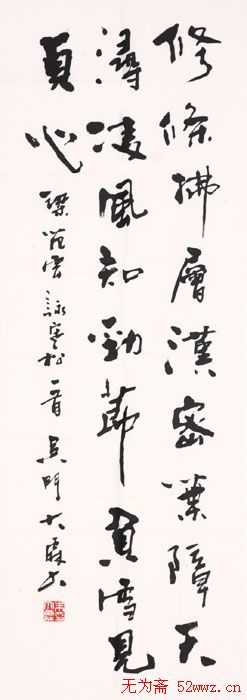 修條拂層漢密葉障天
潯凌風知勁節負雪見
貞心
梁范雲詠寒松一首 吳門大霖书
无为斋 52wwz.cn